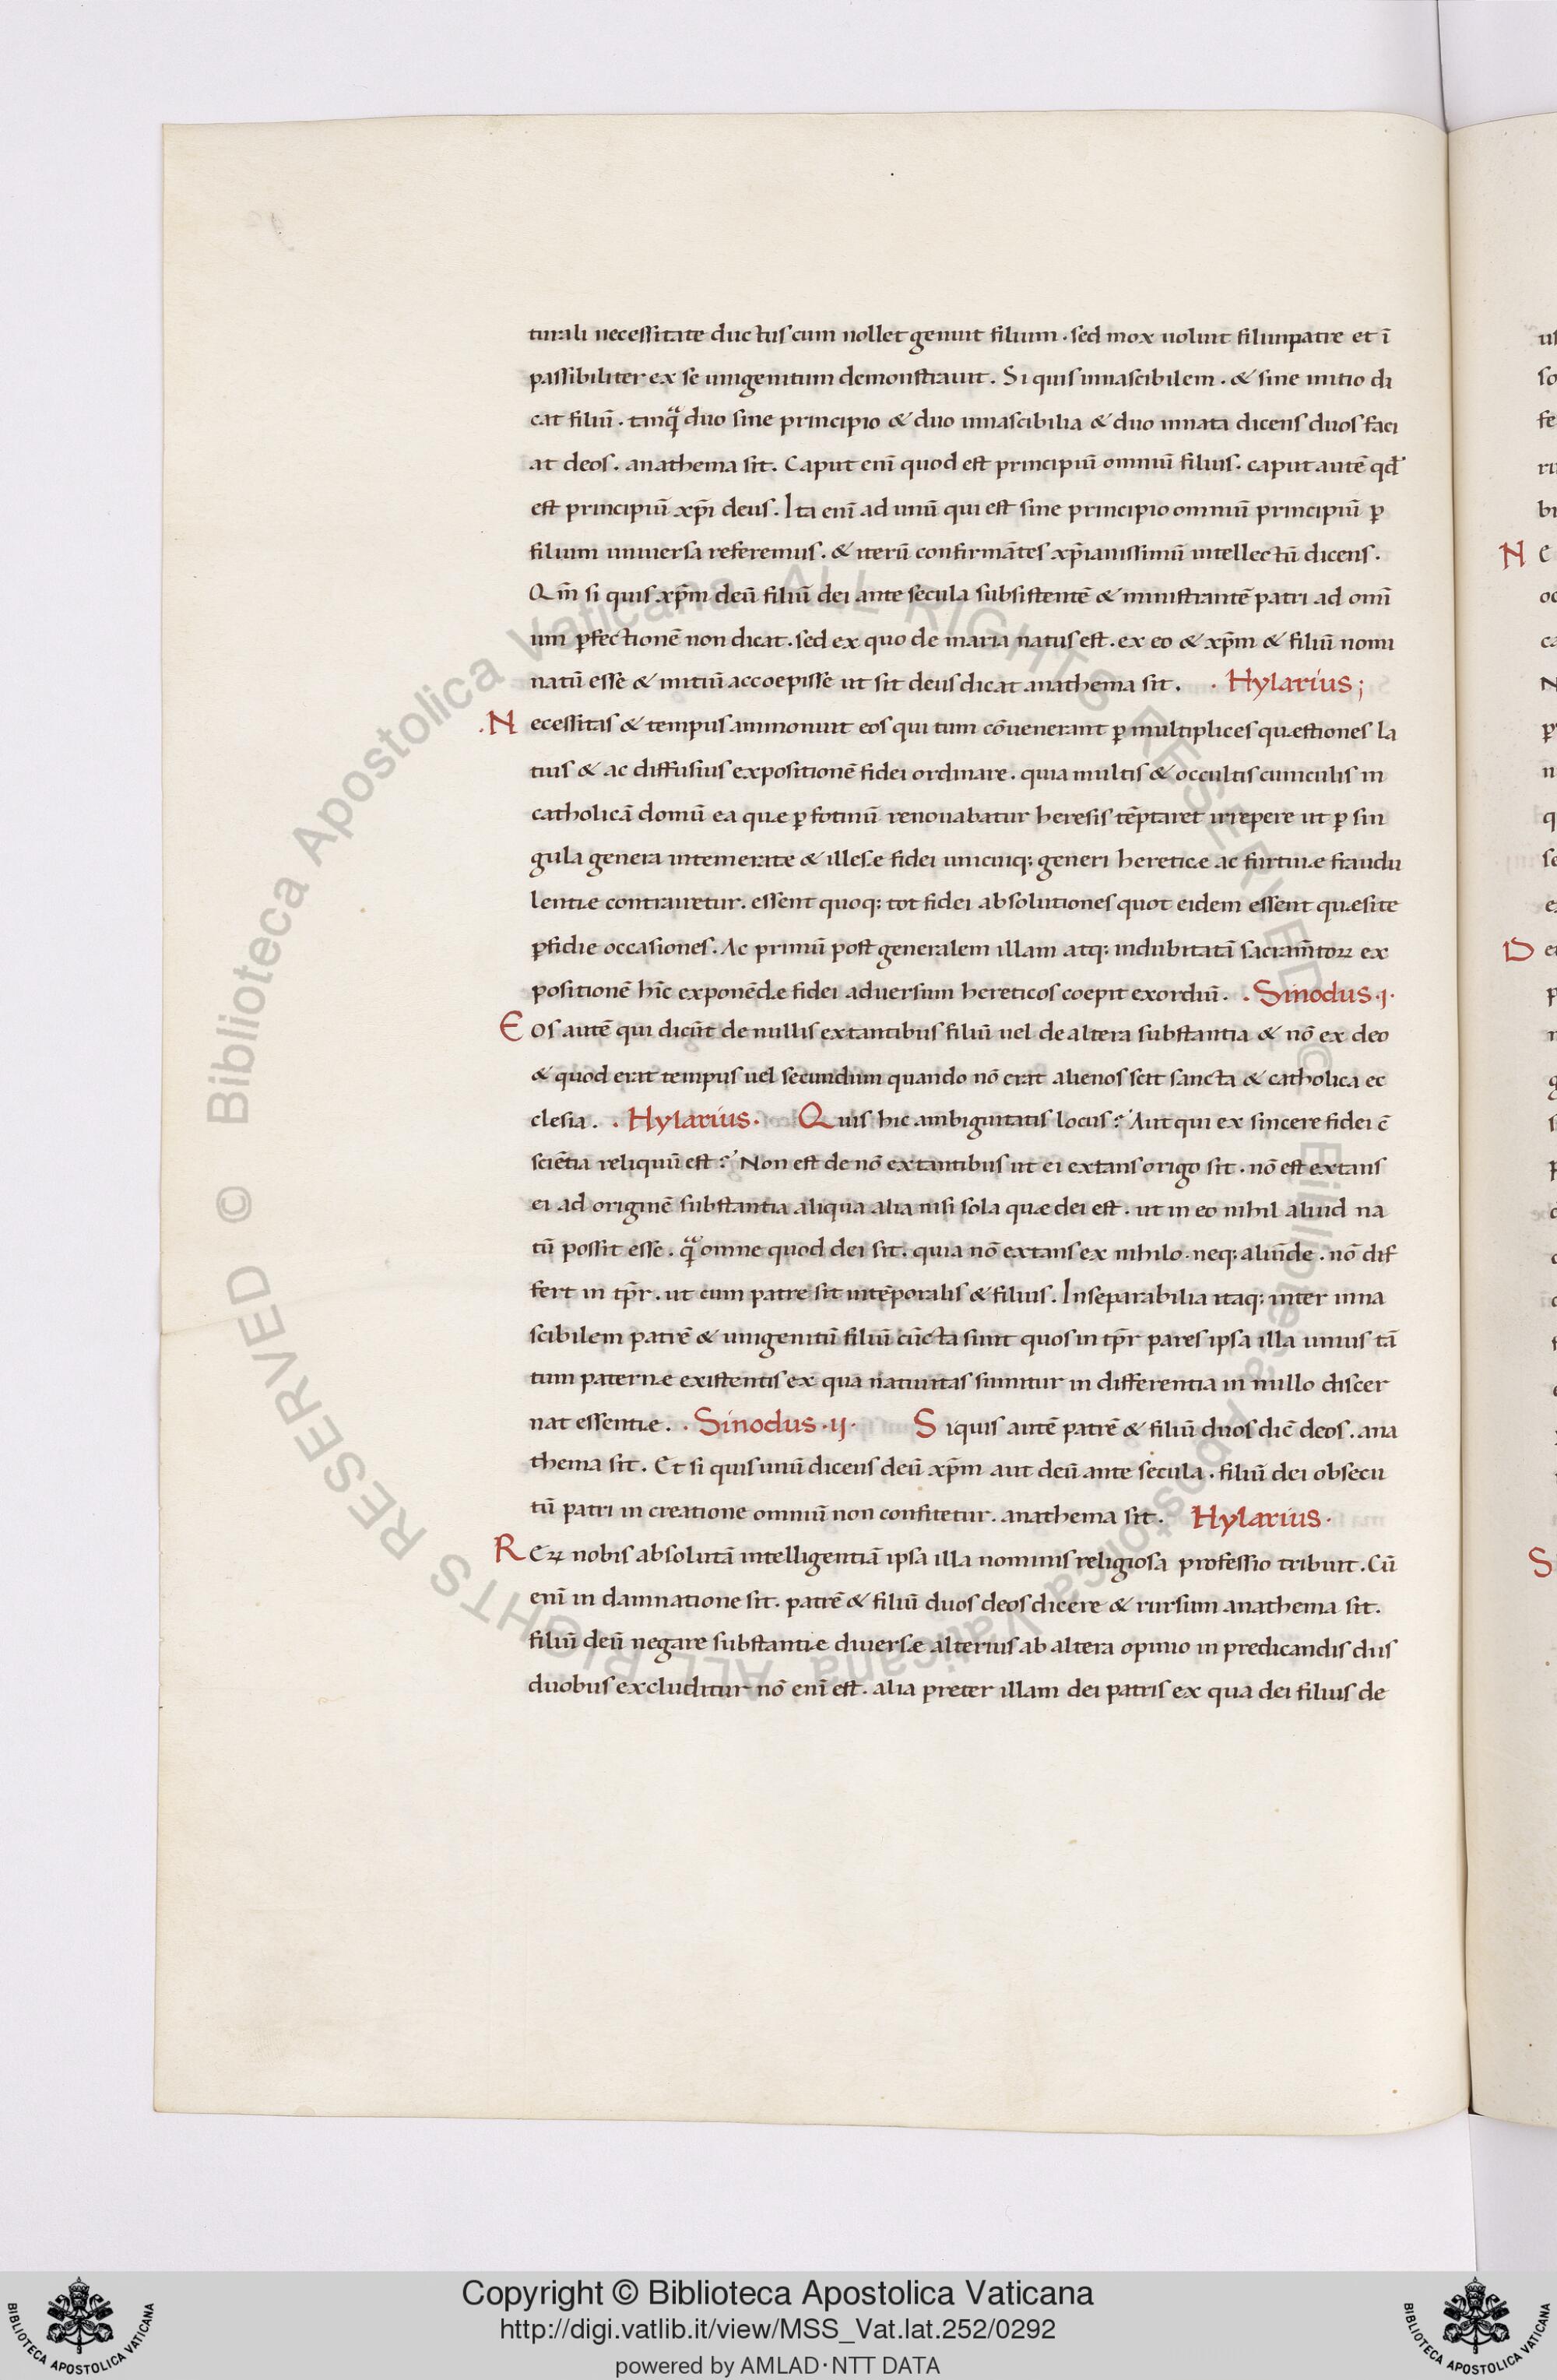 turali necessitate ductus cum nollet genuit filium . sed mox uoluit filiumpatre et ī
passibiliter ex se unigenitum demonstrauit . Si quis innascibilem . & sine initio di
cat filiū . tanqͣ̄ duo sine principio & duo innascibilia & duo innata dicens duos faci
at deos . anathema sit . Caput enī quod est principiū omniū filius . caput autē qd̄
est principiū xp̄i deus . Ita enī ad unū qui est sine principio omniū principiū ꝑ
filium uniuersa referemus . & iterū confirmātes xp̄ianissimū intellectū dicens .
Qm̄ si quis xp̄m deū filiū dei ante secula subsistentē & ministrantē patri ad omī
um ꝑfectionē non dicat . sed ex quo de maria natus est . ex eo & xp̄m & filiū nomi
natū esse & initiū accoepisse ut sit deus dicat anathema sit . . Hylarius ;
. N ecessitas & tempus ammonuit eos qui tum cōuenerant ꝑ multiplices quęstiones la
tius & ac diffusius expositionē fidei ordinare . quia multis & occultis cuniculis in
catholicā domū ea quæ ꝑ fotinū renouabatur heresis tēptaret irrepere ut ꝑ sin
gula genera intemeratæ & illesæ fidei unicuiq; generi hereticæ ac furtiuæ fraudu
lentiæ contrairetur . essent quoq; tot fidei absolutiones quot eidem essent quæsite
ꝑfidie occasiones . Ac primū post generalem illam atq; indubitatā sacram̄toꝝ ex
positionē hīc exponēdæ fidei aduersum hereticos coepit exordiū . . Sinodus . i .
E os autē qui dicūt de nullis extantibus filiū uel de altera substantia & nō ex deo
& quod erat tempus uel secundum quando nō erat alienos scit sancta & catholica ec
clesia . . Hylarius . Quis hic ambiguitatis locus ? Aut qui ex sincere fidei c̄
sciētia reliquū est ? Non est de nō extantibus ut ei extans origo sit . nō est extans
ei ad originē substantia aliqua alia nisi sola quæ dei est . ut in eo nihil aliud na
tū possit esse . qͣ̄ omne quod dei sit . quia nō extans ex nihilo . neq; aliūde . nō dif
fert in tp̄r . ut cum patre sit intēporalis & filius . Inseparabilia itaq; inter inna
scibilem patrē & unigenitū filiū cūcta sunt quos in tp̄r pares ipsa illa unius tā
tum paternæ existentis ex qua natiuitas sumitur in differentia in nullo discer
nat essentiæ . . Sinodus . ij . Siquis autē patrē & filiū duos dic̄ deos . ana
thema sit . Et si quis unū dicens deū xp̄m aut deū ante secula . filiū dei obsecu
tū patri in creatione omniū non confitetur . anathema sit . Hylarius .
R Eꝝ nobis absolutā intelligentiā ipsa illa nominis religiosa professio tribuit . Cū
enī in damnatione sit . patrē & filiū duos deos dicere & rursum anathema sit .
filiū deū negare substantiæ diuersæ alterius ab altera opinio in predicandis diis
duobus excluditur nō enī est . alia preter illam dei patris ex qua dei filius de
Copyright © Biblioteca Apostolica Vaticana
http://digi.vatlib.it/view/MSS_Vat.lat.252/0292
powered by AMLAD·NTT DATA
BIBLIOTECA APOSTOLICA VATICANA
BIBLIOTECA APOSTOLICA VATICANA
© Biblioteca Apostolica Vaticana ALL RIGHTS RESERVED © Biblioteca Apostolica Vaticana ALL RIGHTS RESERVED